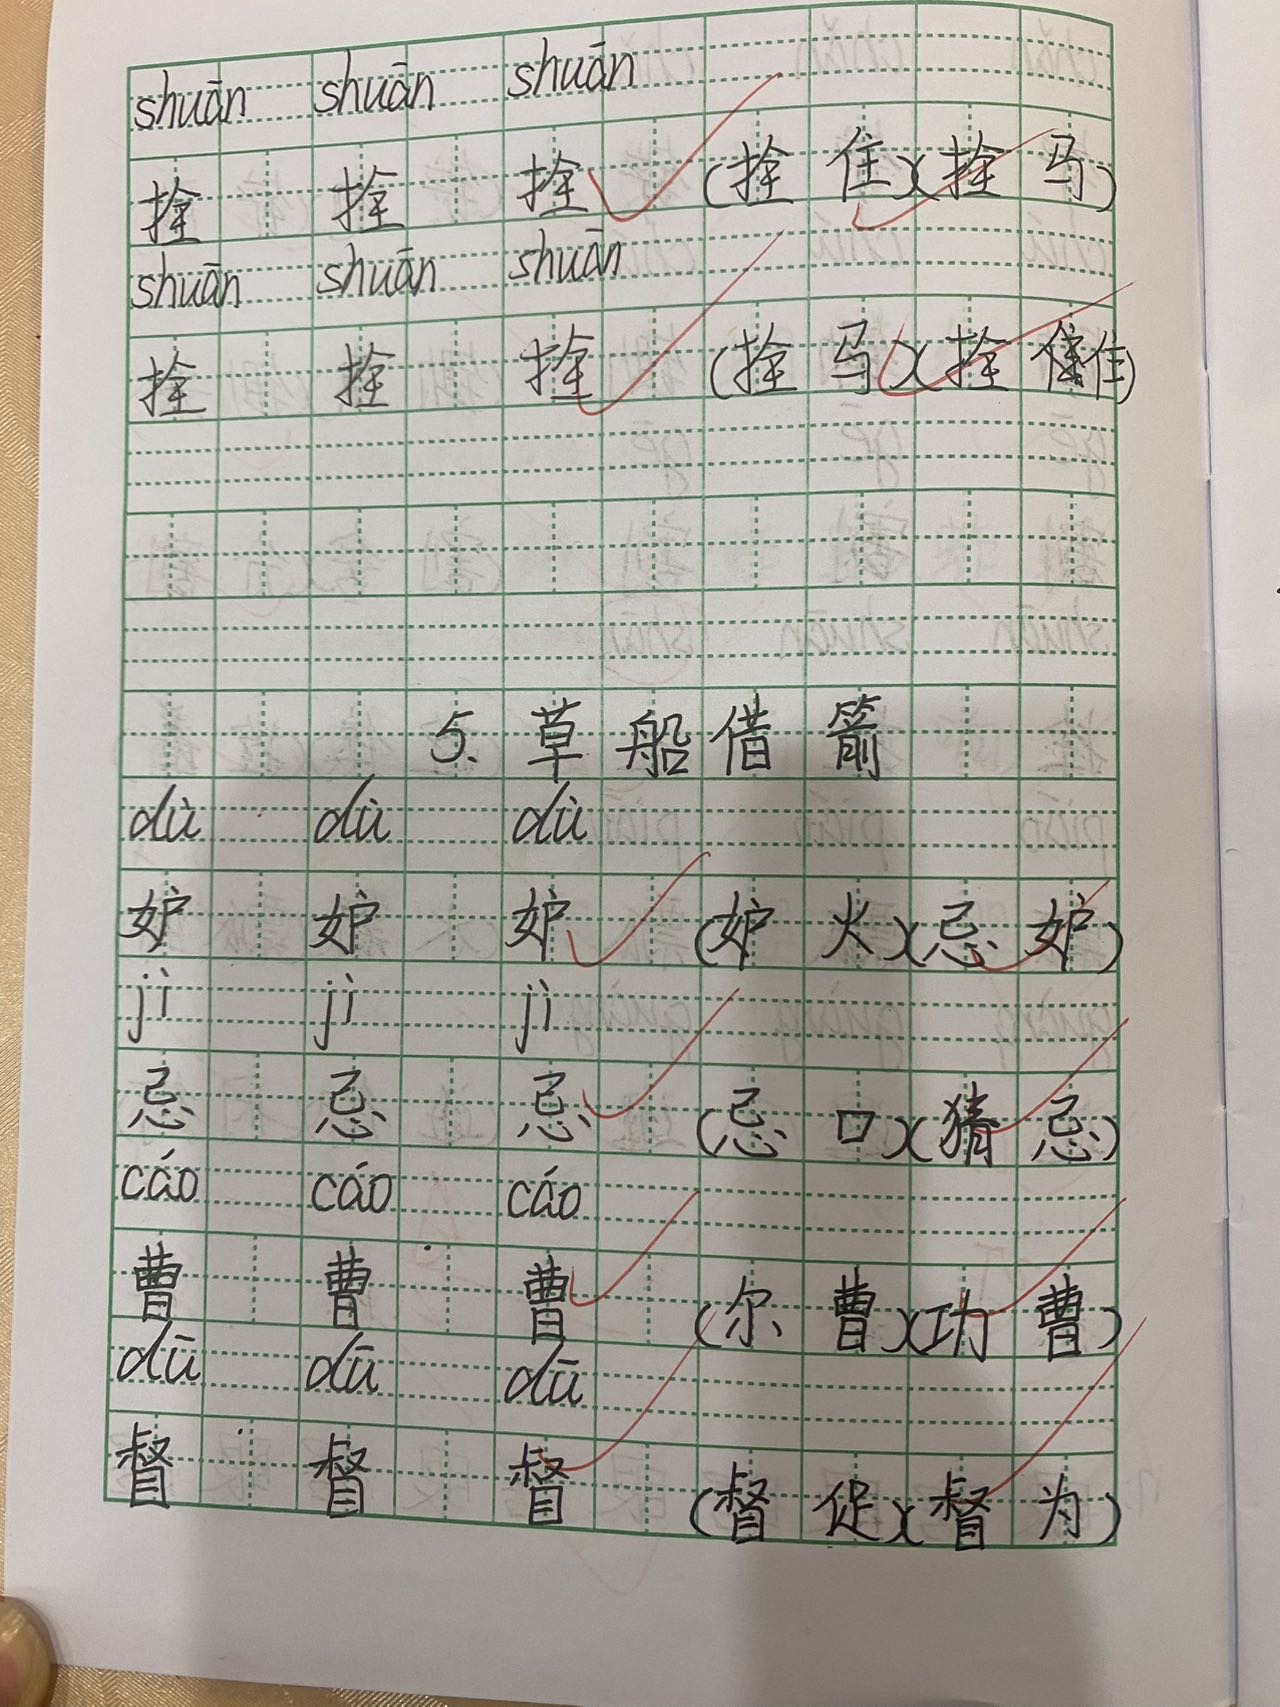 shuān shuān shuān
拴 拴 拴 (拴住)(拴马)
shuān shuān shuān
拴 拴 拴 (拴马)(拴住)
5. 草船借箭
dù dù dù
妒 妒 妒 (妒火)(忌妒)
jì jì jì
忌 忌 忌 (忌口)(猜忌)
cáo cáo cáo
曹 曹 曹 (尔曹)(功曹)
dū dū dū
督 督 督 (督促)(督为)